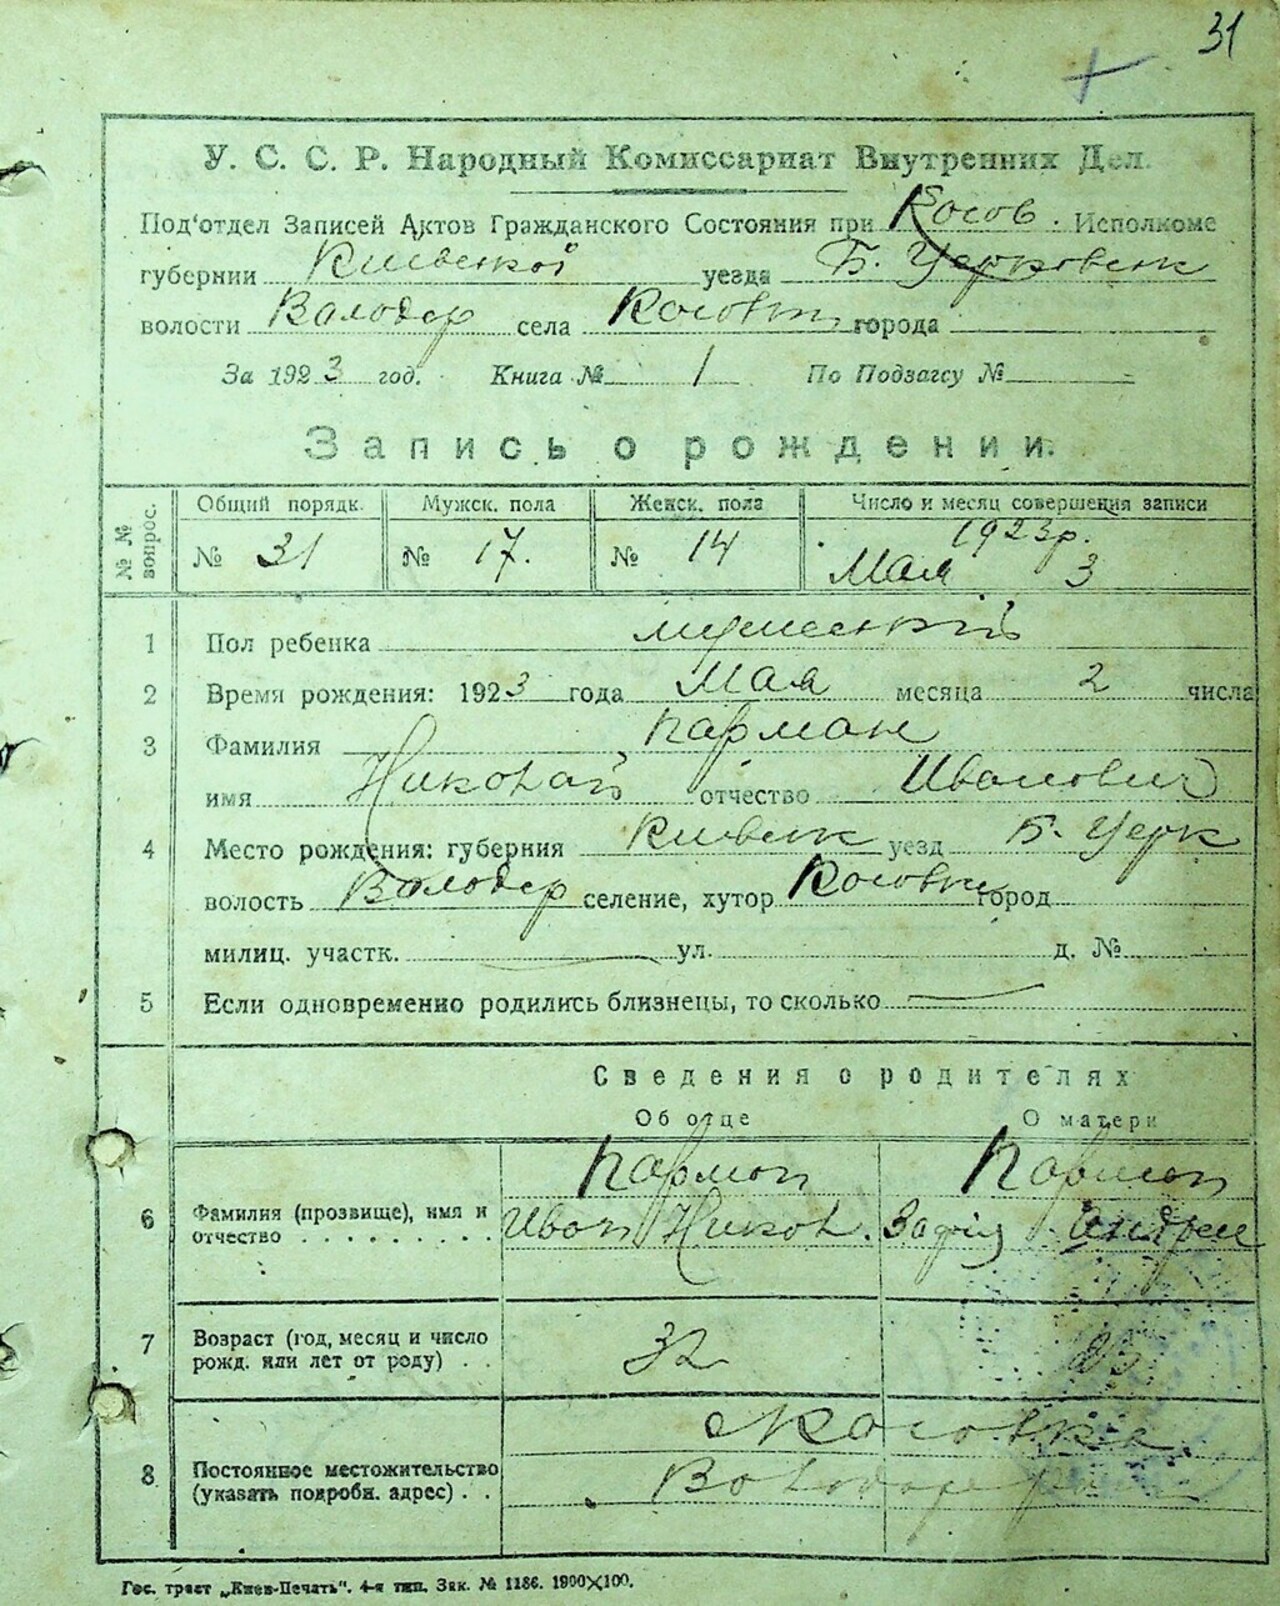 31
У. С. С. Р. Народный Комиссариат Внутренних Дел.
Под'отдел Записей Актов Гражданского Состояния при Косов. Исполкоме
губернии Киевской уезда Б. Церковск
волости Володар села Косовки города
За 1923 год. Книга № 1 По Подзагсу №
Запись о рождении.
№ № вопрос. Общий порядк. Мужск. пола Женск. пола Число и месяц совершения записи
№ 31 № 17. № 14 1923р.
Мая 3
1 Пол ребенка мужеский
2 Время рождения: 1923 года Мая месяца 2 числа
3 Фамилия Карман
имя Николай отчество Иванович
4 Место рождения: губерния Киевск уезд Б. Церк
волость Володар селение, хутор Косовка город
милиц. участк. ул. д. №
5 Если одновременно родились близнецы, то сколько
Сведения о родителях
Об отце О матери
Карман Карман
6 Фамилия (прозвище), имя и
отчество Иван Никол. Андрее
7 Возраст (год, месяц и число
рожд. или лет от роду) . . 32 25
с Косовка
8 Постоянное местожительство
(указать подробн. адрес) . . Володар
Гос. трест „Киев-Печать". 4-я тип. Зак. № 1186. 1900×100.